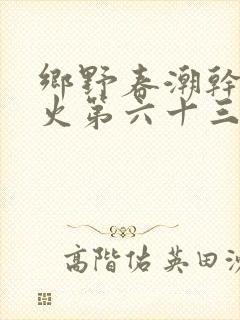 鄉野春潮幹
火第六十三
高階佑英田沙